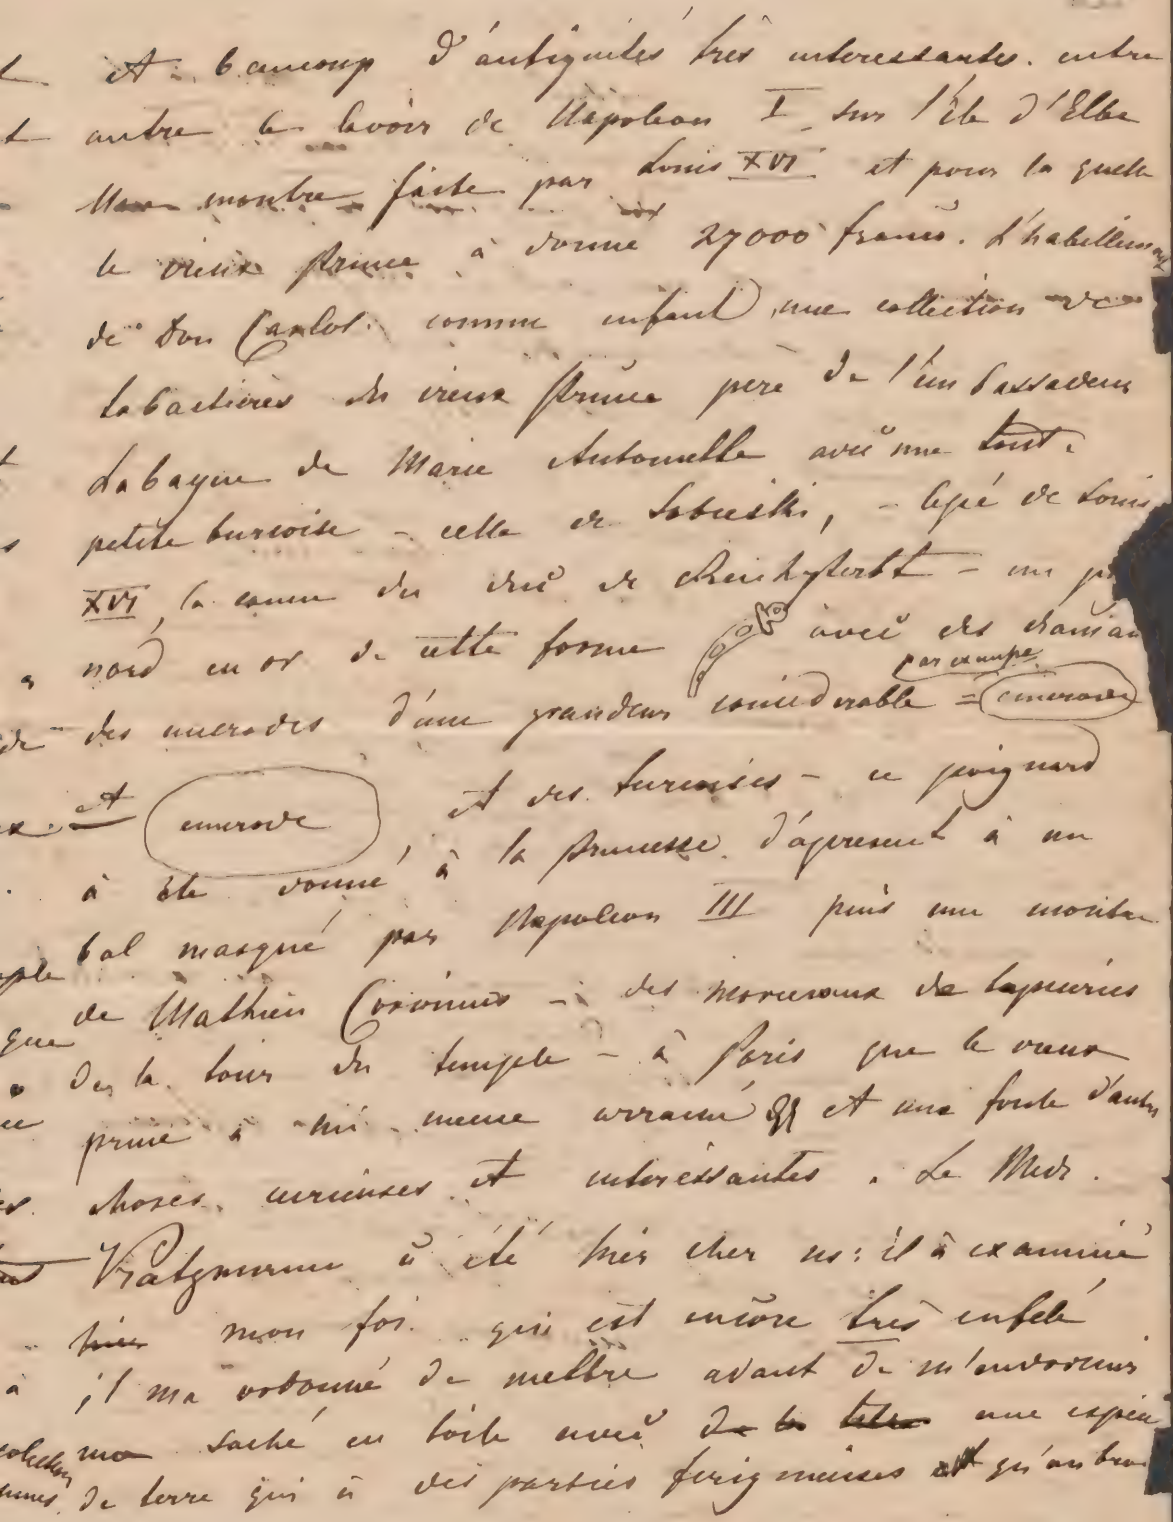 et beaucoup d'antiquités très interessantes. entre
autre le lavoir de Napoleon I sur l'île d'Elbe
montre faite par Louis XVI et pour la quelle
le vieux Prince à donné 27000 francs. L'habillement
de Don Carlos comme enfant, une collection de
tabatières du vieux Prince père de l'embassadeur
La bague de Marie Antoinette avec une tout
petite turcoise - celle de Sobieski, - l'epé de Louis
XVI, la canne du duc de - un
nard en or de cette forme avec des diaman
par exempe
des emerodes d'une grandeur consiederable = emerode
et emerode et des turcoises - ce poignard
à été donné à la Princesse d'àpresent à un
bal masqué par Napoleon III puis une montre
de Mathieu Corvinus - des morceaux de tapiseries
de la tour du temple - à Paris que le vieux
prince à lui meme arraché et une foule d'autres
choses curieuses et interessantes. Le Med.
à été hier cher ns: il à examiné
hier mon foi qui est encore très enfelé
il ma ordonné de mettre avant de m'endormir
saché en toile avec de la une espèce
de terre qui à des parties ferigineuses qu'on